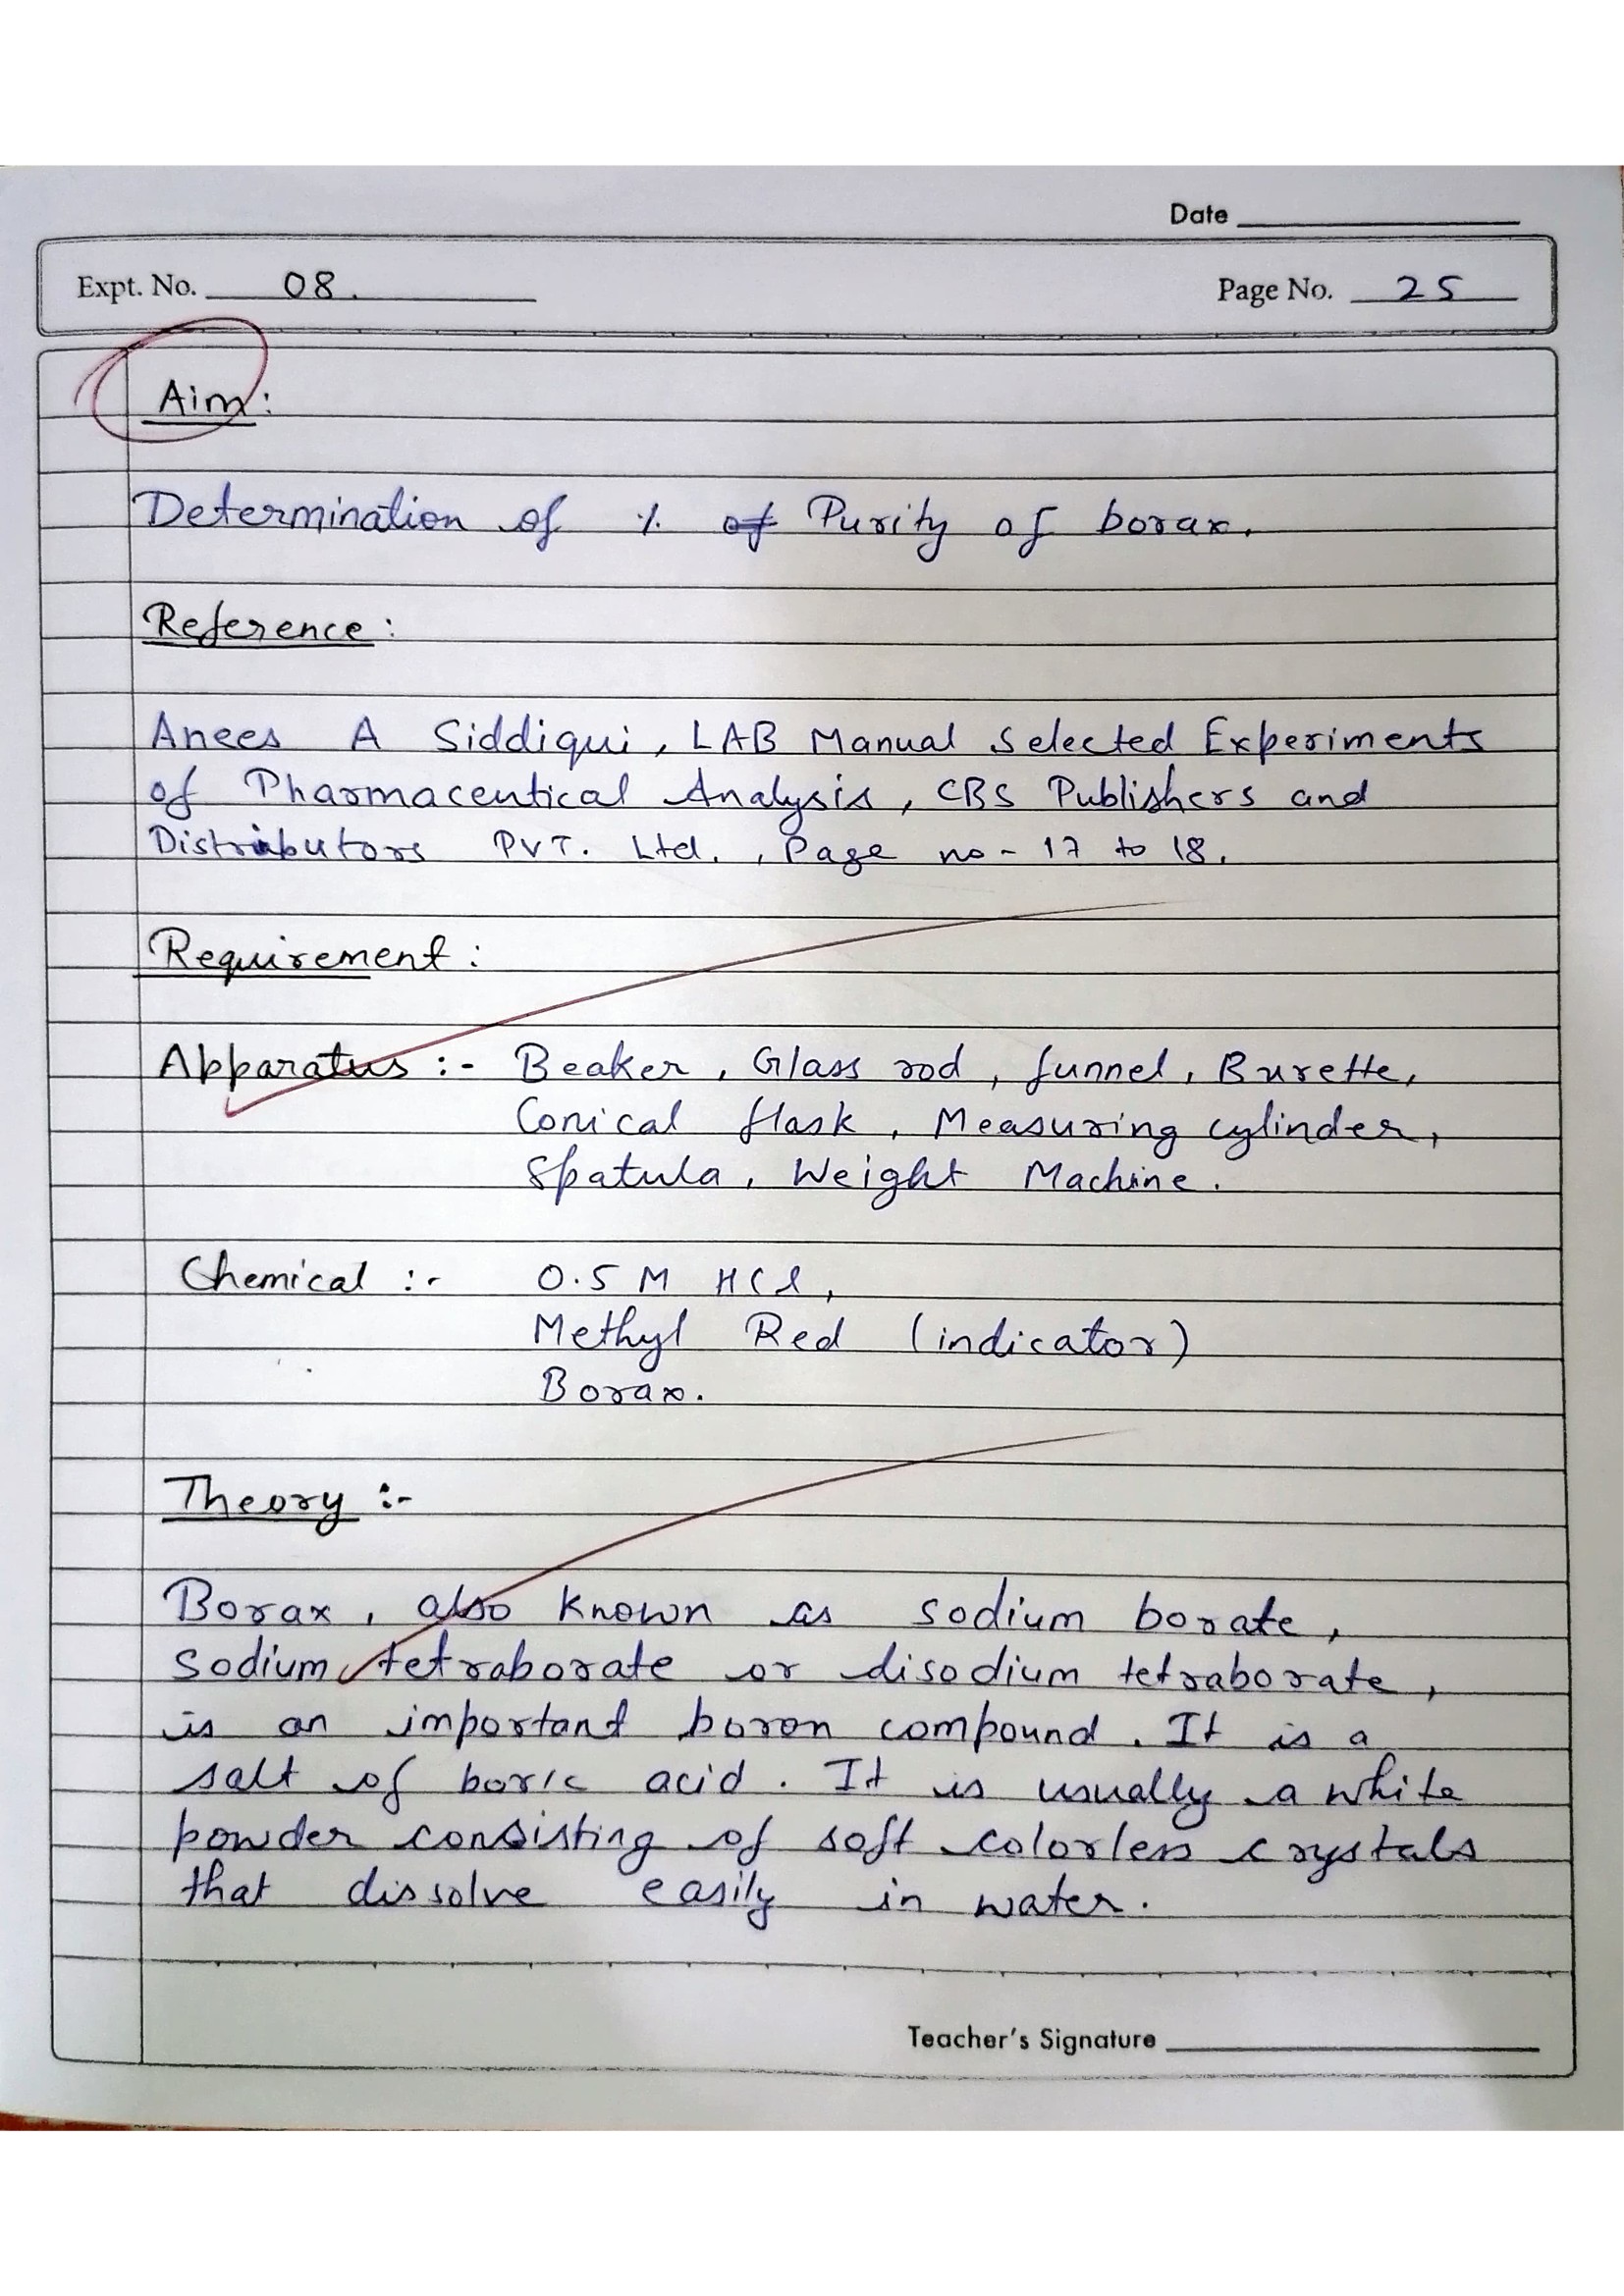 Date
Expt. No. 08.
Page No. 25
Aim:
Determination of % of Purity of borax.
Reference:
Anees A Siddiqui, LAB Manual Selected Experiments
of Pharmaceutical Analysis, CBS Publishers and
Distributors PVT. Ltd., Page no - 17 to 18.
Requirement:
Apparatus :- Beaker, Glass rod, funnel, Burette,
Conical flask, Measuring cylinder,
Spatula, Weight Machine.
Chemical :- 0.5 M HCl,
Methyl Red (indicator)
Borax.
Theory :-
Borax, also known as sodium borate,
Sodium tetraborate or disodium tetraborate,
is an important boron compound. It is a
salt of boric acid. It is usually a white
powder consisting of soft colorless crystals
that dissolve easily in water.
Teacher's Signature